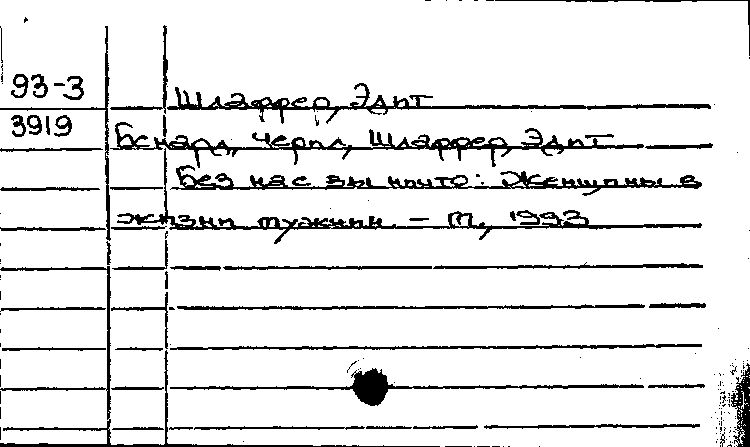 93-3
Шлаффер, Эдит
3919
Бенард, Черил, Шлаффер, Эдит
Без нас вы ничто: Женщины в
жизни мужчин. - М., 1993